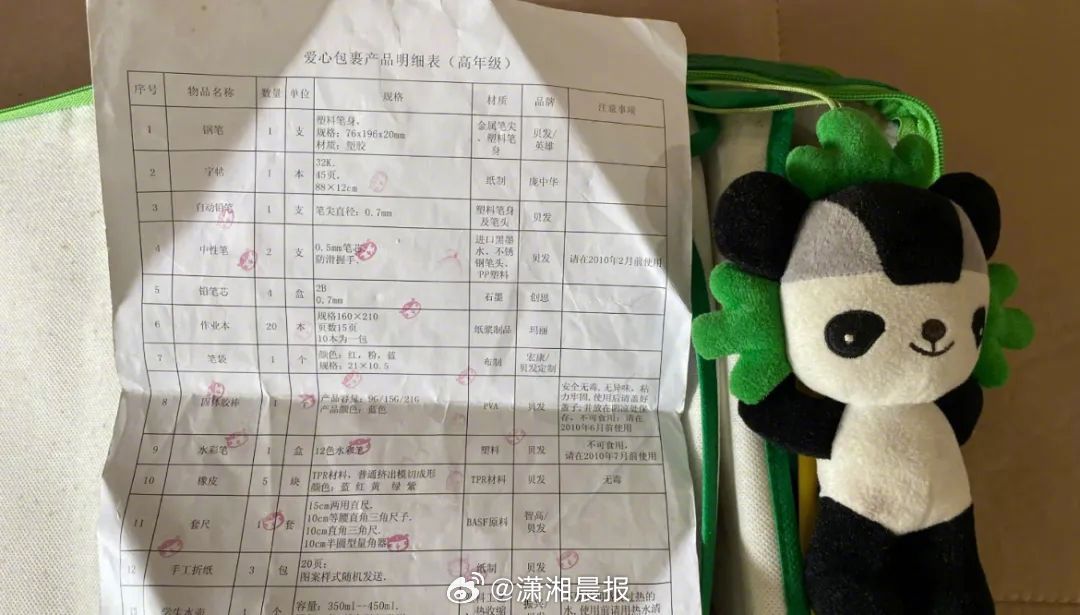 爱心包裹产品明细表（高年级）
序号 物品名称 数量 单位 规格 材质 品牌 注意事项
1 钢笔 1 支 塑料笔身， 规格：76x196x20mm 材质：塑胶 金属笔尖、塑料笔身 贝发/英雄
2 字帖 1 本 32K. 45页. 88×12cm 纸制 庞中华
3 自动铅笔 1 支 笔尖直径：0.7mm 塑料笔身及笔头 贝发
4 中性笔 2 支 0.5mm笔芯 防滑握手. 进口黑墨水、不锈钢笔头、PP塑料 贝发 请在2010年2月前使用
5 铅笔芯 4 盒 2B 0.7mm 石墨 创思
6 作业本 20 本 规格160×210 页数15页 10本为一包 纸浆制品 玛丽
7 笔袋 1 个 颜色：红，粉，蓝 规格：21×10.5 布制 宏康/贝发定制
8 固体胶棒 1 产品容量：9G/15G/21G 产品颜色：蓝色 PVA 贝发 安全无毒，无异味，粘力牢固，使用后请盖好盖子，并放在阴凉处保存，不可食用；请在2010年6月前使用
9 水彩笔 1 盒 12色水彩笔 塑料 贝发 不可食用，请在2010年7月前使用
10 橡皮 5 块 TPR材料，普通挤出模切成形 颜色：蓝 红 黄 绿 紫 TPR材料 贝发 无毒
11 套尺 1 套 15cm两用直尺. 10cm等腰直角三角尺子. 10cm直角三角尺. 10cm半圆型量角器 BASF原料 智高/贝发
12 手工折纸 3 包 20页； 图案样式随机发送. 纸制 贝发
学生水壶 1 个 容量：350ml--450ml. 热收缩 水，使用前请用热水清
@潇湘晨报